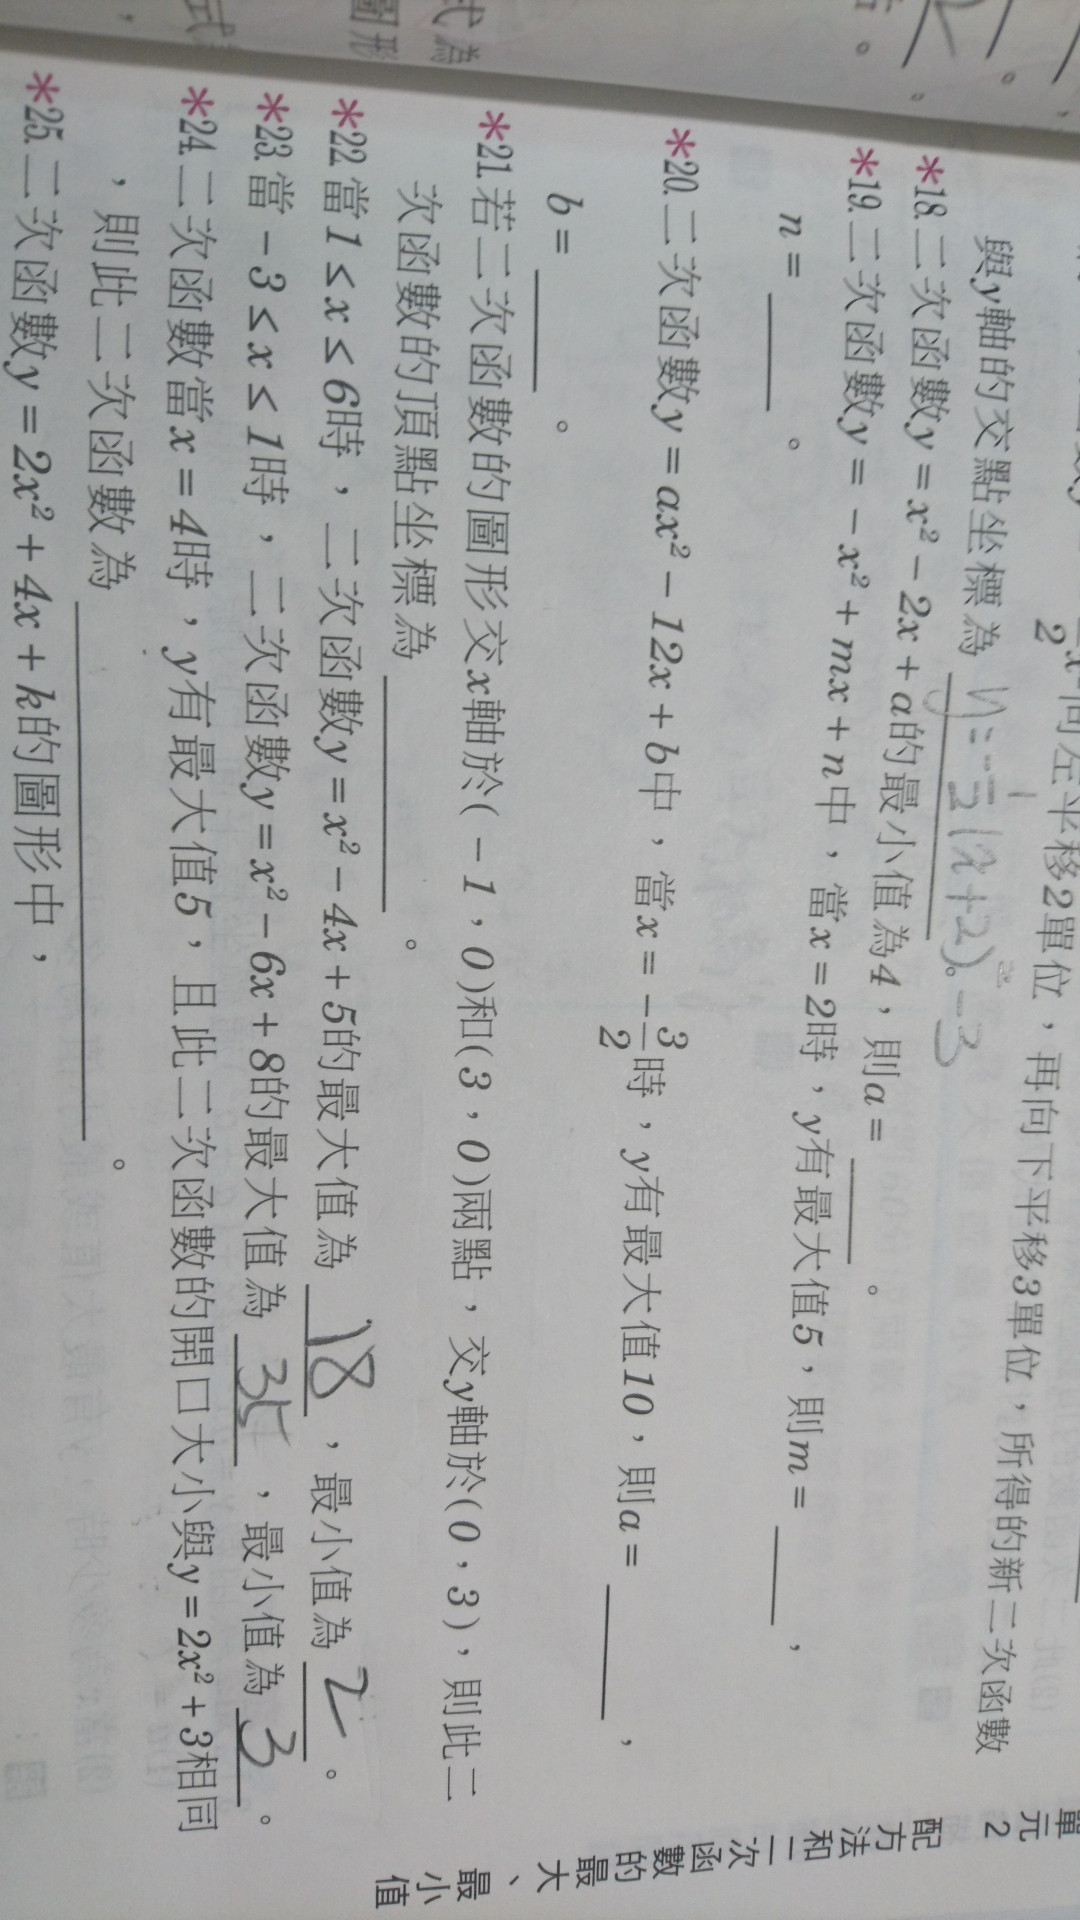 2
向左平移2單位，再向下平移3單位，所得的新二次函數
與y軸的交點坐標為 y=-1/2(x+2)²-3。
*18.二次函數y＝x²－2x＋a的最小值為4，則a＝____。
*19.二次函數y＝－x²＋mx＋n中，當x＝2時，y有最大值5，則m＝____，
n＝____。
*20.二次函數y＝ax²－12x＋b中，當x＝－3/2時，y有最大值10，則a＝____，
b＝____。
*21.若二次函數的圖形交x軸於(－1，0)和(3，0)兩點，交y軸於(0，3)，則此二
次函數的頂點坐標為____。
*22.當1≤x≤6時，二次函數y＝x²－4x＋5的最大值為 18，最小值為 2。
*23.當－3≤x≤1時，二次函數y＝x²－6x＋8的最大值為 35，最小值為 3。
*24.二次函數當x＝4時，y有最大值5，且此二次函數的開口大小與y＝2x²＋3相同
，則此二次函數為____。
*25.二次函數y＝2x²＋4x＋k的圖形中，
單元2 配方法和二次函數的最大、最小值
式為
圖形
式